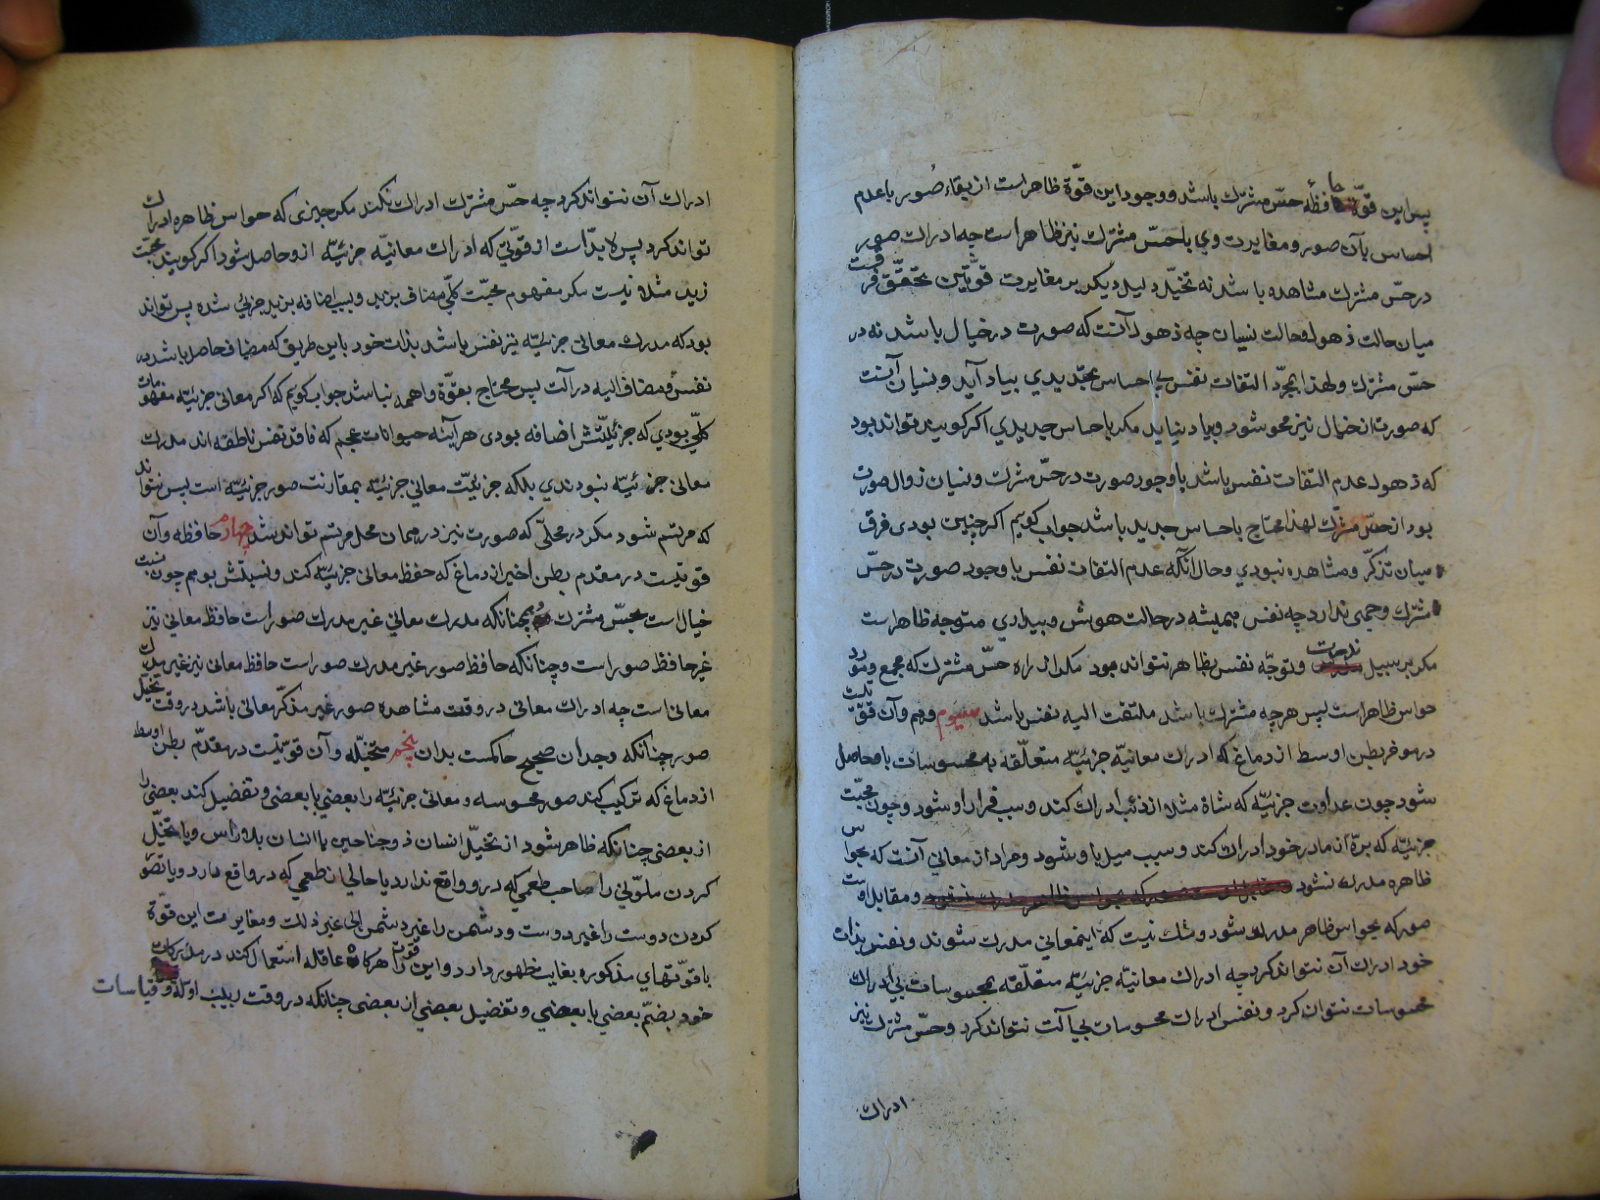 پس این قوّة حافظهٔ حسّ مشترك باشد و وجود این قوّة ظاهر است از بقاء صُور با عدم
احساس بآن صور و مغایرت وي با حسّ مشترك نیز ظاهر است چه ادراك صور
در حسّ مشترك مشاهده باشد نه تخیّل دلیل دیکر بر مغایرت قوّتین تحقّق فرقست
میان حالت ذهول و حالت نسیان چه ذهول آنست که صورت در خیال باشد نه در
حسّ مشترك و لهذا بمجرّد التفات نفس بي احساس مجدّدي بیاد آید و نسیان آنست
که صورت از خیال نیز محو شود و بیاد نیاید مکر باحساس جدیدي اکر کویند تواند بود
که ذهول عدم التفات نفس باشد با وجود صورت در حسّ مشترك و نسیان زوال صورت
بود از حسّ مشترك لهذا محتاج باحساس جدید باشد جواب کویم اکر چنین بودی فرق
میان تذکّر و مشاهده نبودي و حال آنکه عدم التفات نفس با وجود صورت در حسّ
مشترك وجهی ندارد چه نفس همیشه در حالت هوش و بیداري متوجه ظاهر است
مکر بر سبیل ندرت و توجّه نفس بظاهر نتواند بود مکر از راه حسّ مشترك که مجمع و مورد
حواس ظاهر است پس هر چه در حسّ مشترك باشد ملتفت الیه نفس باشد سیوم وهم و آن قوّتیست
در موخر بطن اوسط از دماغ که ادراك معانیّه جزئیّه متعلّقه به محسوسات باو حاصل
شود چون عداوت جزئیّه که شاة مثلا از ذئب ادراك کند و سبب فرار او شود و چون محبّت
جزئیّه که برّة از مادر خود ادراك کند و سبب میل باو شود و مراد از معاني آنست که بحواس
ظاهره مدرك نشود و مقابل اوست
صور که بحواس ظاهر مدرك شود و شك نیست که اینمعاني مدرك شوند و نفس بذات
خود ادراك آن نتواند کرد چه ادراك معانیّه جزئیّه متعلّقه بمحسوسات بي ادراك
محسوسات نتوان کرد و نفس ادراك محسوسات بي آلت نتواند کرد و حسّ مشترك نیز
ادراك
ادراك آن نتواند کرد چه حسّ مشترك ادراك نکند مکر چیزی که حواس ظاهره ادراك
تواند کرد پس لا بدّ است از قوّتی که ادراك معانیّه جزئیّه ازو حاصل شود اکر کویند محبّت
زید مثلا نیست مکر مفهوم محبّت کلّي مضاف بزید و بسبب اضافه بزید جزئي شده پس تواند
بود که مدرك معاني جزئیّه نیز نفس باشد بذات خود باین طریق که مضاف حاصل باشد در
نفس و مضاف الیه در آلت پس محتاج بقوّة واهمه نباشد جواب کویم که اکر معاني جزئیّه مفهومات
کلّي بودي که جزئیّتش اضافه بودی هر آینه حیوانات عجم که فاقد نفس ناطقه اند مدرك
معاني جزئیّه نبودندي بلکه جزئیّت معاني جزئیّه بمقارنت صور جزئیّه است پس نتواند
که مرتسم شود مکر در محلّی که صورت نیز در همان محل مرتسم تواند شد چهارم حافظه و آن
قوتیست در مقدم بطن اخیر از دماغ که حفظ معاني جزئیّه کند و نسبتش بوهم چون نسبت
خیال است بحسّ مشترك و همچنانکه مدرك معاني غیر مدرك صور است حافظ معاني نیز
غیر حافظ صور است و چنانکه حافظ صور غیر مدرك صور است حافظ معاني نیز غیر مدرك
معاني است چه ادراك معاني در وقت مشاهده صور غیر تذکّر معاني باشد در وقت تخیّل
صور چنانکه وجدان صحیح حاکمست بدان پنجم متخیّله و آن قوّتیست در مقدّم بطن اوسط
از دماغ که ترکیب کند صور محسوسه و معاني جزئیّه را بعضي با بعضي و تفصیل کند بعضي را
از بعضي چنانکه ظاهر شود از تخیّل انسان ذو جناحین یا انسان بلا رأس و یا تخیّل
کردن ملوّني را صاحب طعمي که در و واقع ندارد یا خالي از طعمي که در واقع دارد و یا تصوّر
کردن دوست را غیر دوست و دشمن را غیر دشمن الي غیر ذلك و مغایرت این قوّة
با قوّتهاي مذکوره بغایت ظهور دارد و این قوّت را هر کاه عاقله استعمال کند در مدرکات
خود بضمّ بعضي با بعضي و تفصیل بعضي از بعضي چنانکه در وقت ترتیب ادلّه و قیاسات